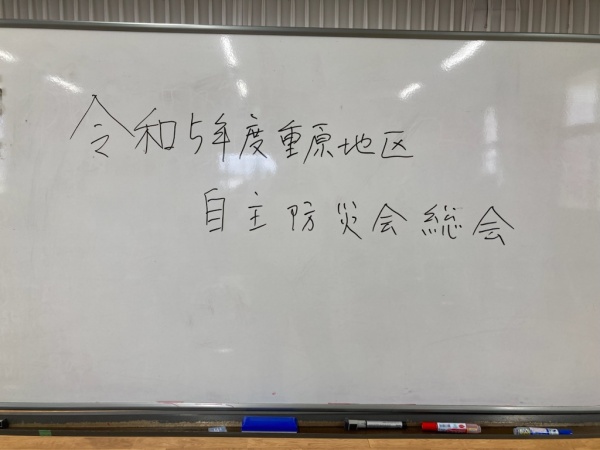 令和5年度重原地区
自主防災会総会